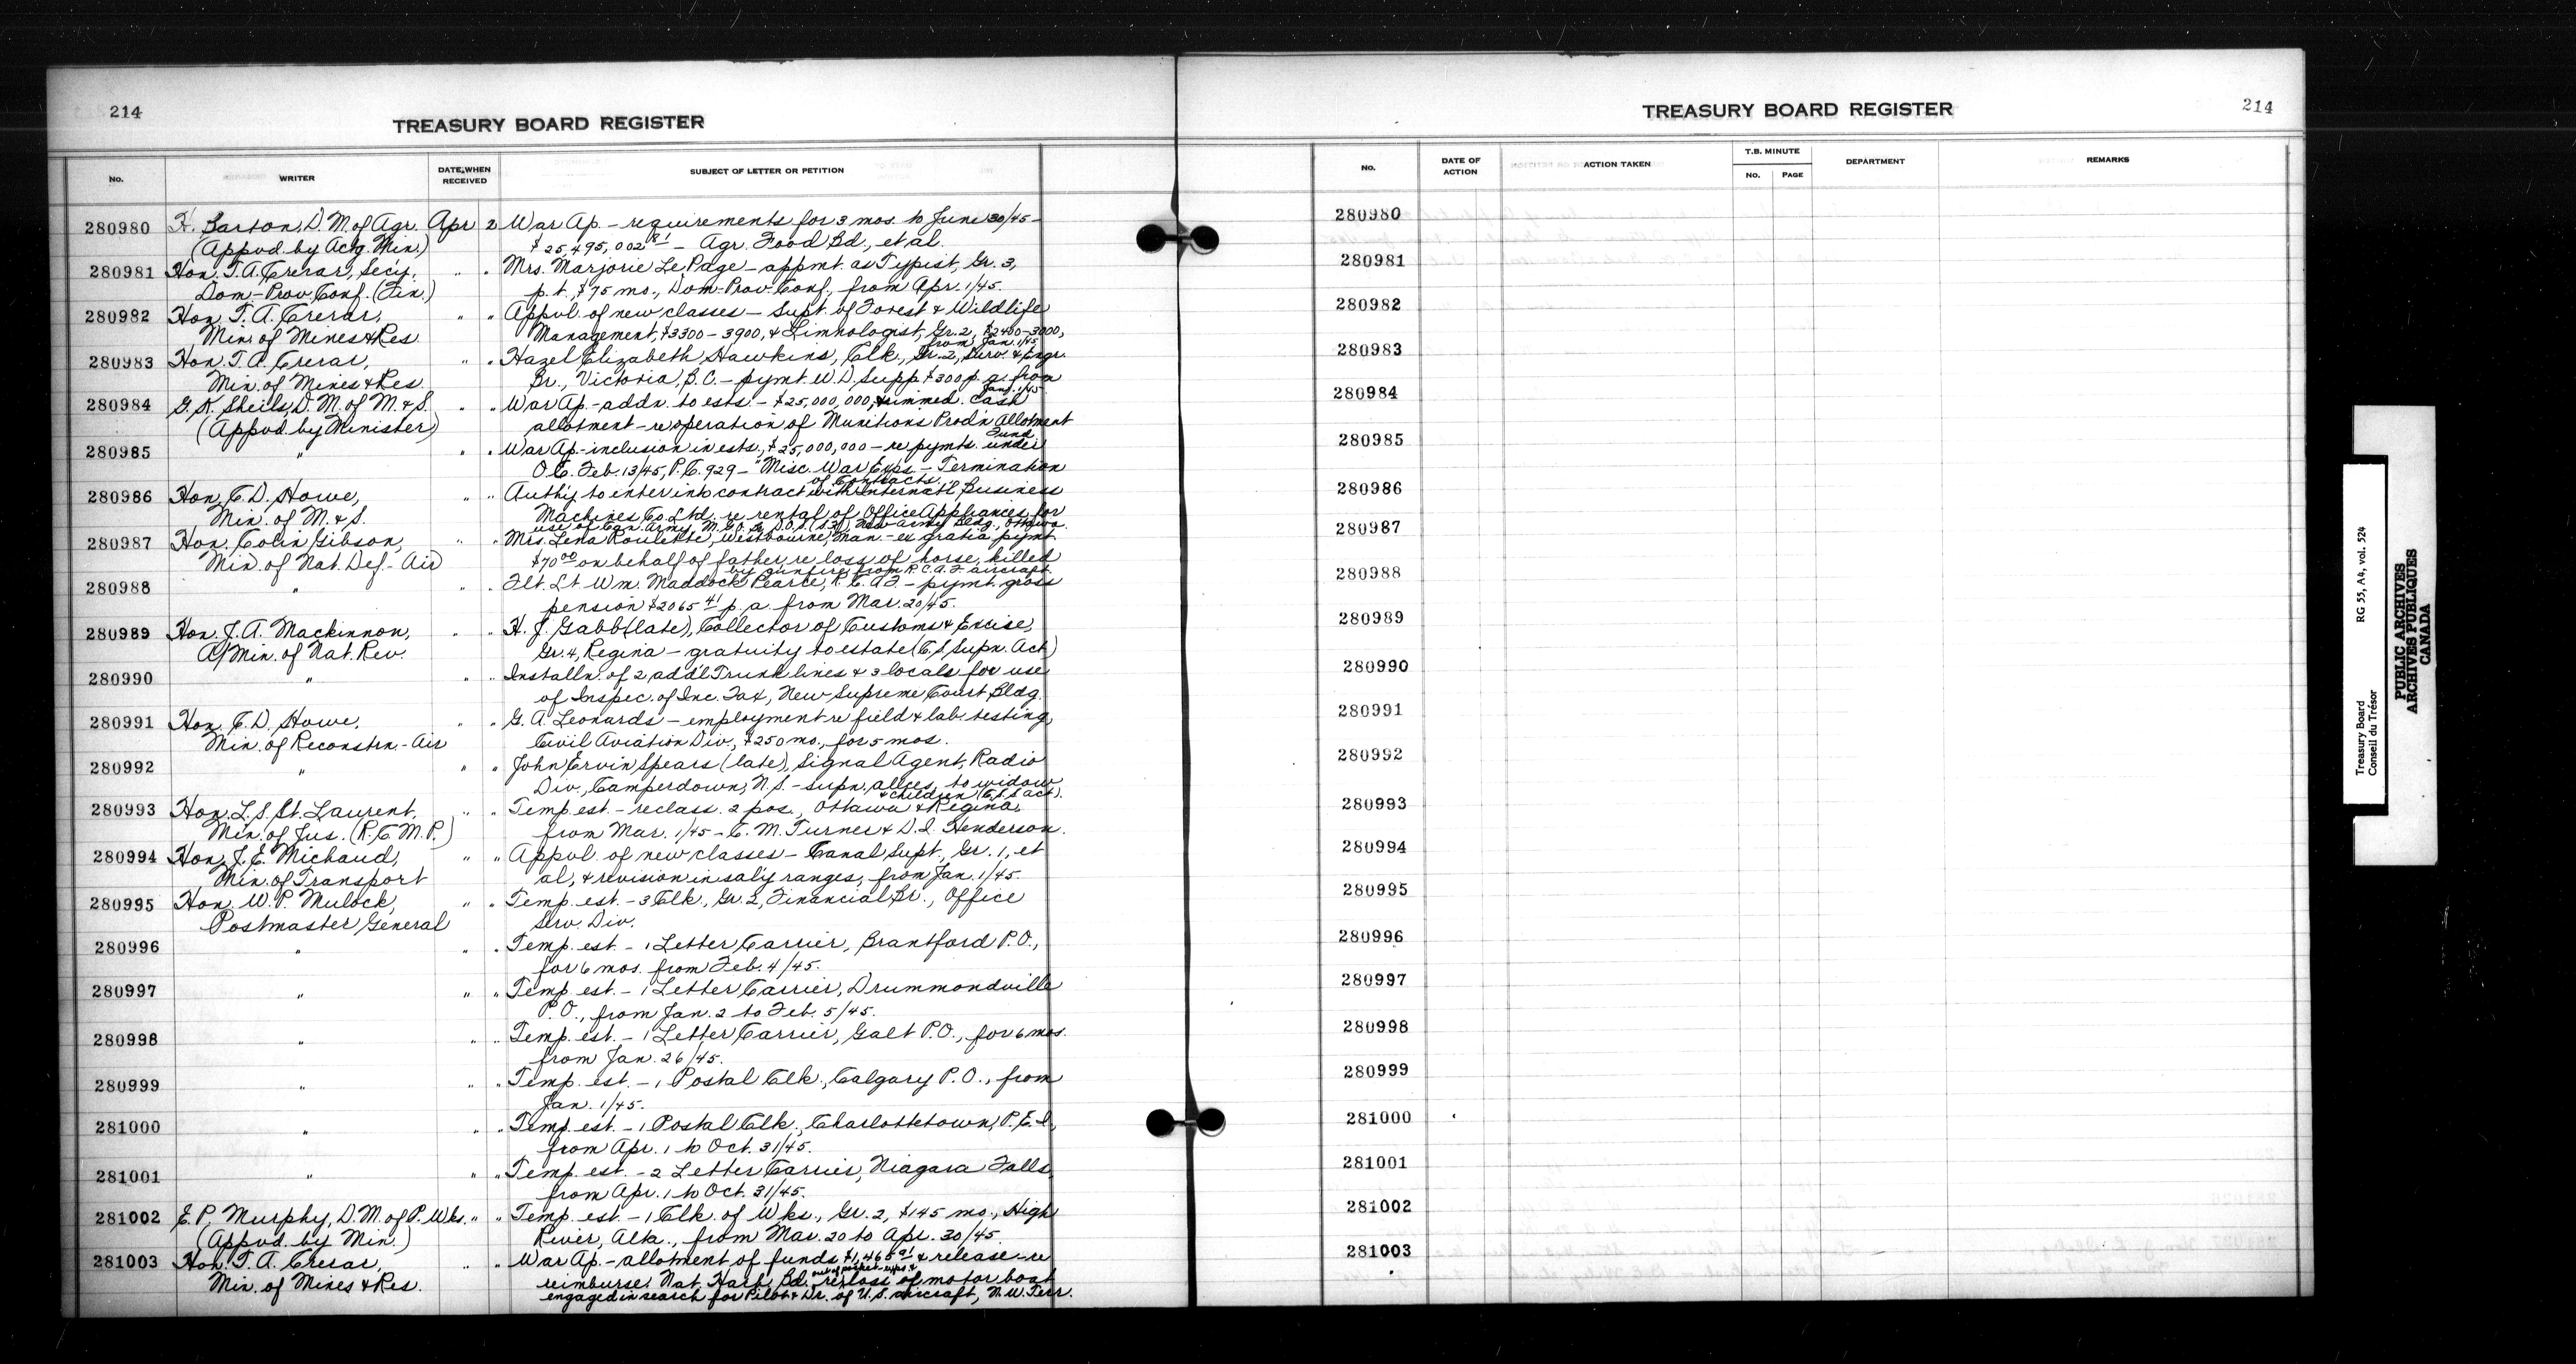 214
TREASURY BOARD REGISTER
No. WRITER DATE WHEN RECEIVED SUBJECT OF LETTER OR PETITION
280980 H. Barton, D. M. of Agr. Apr 2 War Ap. - requirements for 3 mos. to June 30/45 -
(Appvd. by Actg. Min.) $25,495,002.81 - Agr. Food Bd., et al.
280981 Hon. T. A. Crerar, Sec'y. " " Mrs. Marjorie Le Page - appmt. as Typist, Gr. 3,
Dom-Prov. Conf. (Fin.) p.t., $75 mo., Dom-Prov. Conf., from Apr. 1/45.
280982 Hon. T. A. Crerar, " " Appvl. of new classes - Supt. of Forest & Wildlife
Min. of Mines & Res. Management, $3300-3900, & Limnologist, Gr. 2, $2400-3000,
from Jan. 1/45
280983 Hon. T. A. Crerar, " " Hazel Elizabeth Hawkins, Clk., Gr. 2, Surv. & Engr.
Min. of Mines & Res. Br., Victoria, B.C. - pymt. W.D. Supp. $300 p.a. from
Jan. 1/45
280984 G. K. Sheils, D. M. of M. & S. " " War Ap. - addn. to ests. - $25,000,000, & immed. cash
(Appvd. by Minister) allotment - re operation of Munitions Prod'n Allotment
Fund
280985 " " " War Ap. - inclusion in ests., $25,000,000 - re pymts. under
O.C. Feb. 13/45, P.C. 929 - "Misc. War Exps. - Termination
of Contracts."
280986 Hon. C. D. Howe, " " Auth'y to enter into contract with Internat'l Business
Min. of M. & S. Machines Co. Ltd. re rental of Office Appliances for
use of Can. Army, New Army Bldg., Ottawa.
280987 Hon. Colin Gibson, " " Mrs. Lena Roulette, Westbourne, Man. - ex gratia pymt.
Min. of Nat. Def. - Air $70.00 on behalf of father, re loss of horse, killed
by gunfire from R.C.A.F. aircraft.
280988 " " " Flt. Lt. Wm. Maddock Pearce, R.C.A.F. - pymt. gross
pension $2065.41 p.a. from Mar. 20/45.
280989 Hon. J. A. Mackinnon, " " H. J. Gabb (late), Collector of Customs & Excise,
A/Min. of Nat. Rev. Gr. 4, Regina - gratuity to estate (C.S. Supn. Act)
280990 " " " Installn. of 2 add'l Trunk lines & 3 locals for use
of Inspec. of Inc. Tax, New Supreme Court Bldg.
280991 Hon. C. D. Howe, " " G. A. Leonards - employment re field & lab. testing,
Min. of Reconstrn. - Air Civil Aviation Div., $250 mo., for 5 mos.
280992 " " " John Ervin Spears (late), Signal Agent, Radio
Div., Camperdown, N.S. - supn. allces. to widow
& children (C.S.S. act).
280993 Hon. L. S. St. Laurent, " " Temp. est. - reclass. 2 pos., Ottawa & Regina,
Min. of Jus. (R.C.M.P.) from Mar. 1/45 - C. M. Turner & D. I. Henderson.
280994 Hon. J. E. Michaud, " " Appvl. of new classes - Canal Supt., Gr. 1, et
Min. of Transport al, & revision in sal'y ranges, from Jan. 1/45.
280995 Hon. W. P. Mulock, " " Temp. est. - 3 Clk., Gr. 2, Financial Br., Office
Postmaster General Serv. Div.
280996 " " " Temp. est. - 1 Letter Carrier, Brantford P.O.,
for 6 mos. from Feb. 4/45.
280997 " " " Temp. est. - 1 Letter Carrier, Drummondville
P.O., from Jan. 2 to Feb. 5/45.
280998 " " " Temp. est. - 1 Letter Carrier, Galt P.O., for 6 mos.
from Jan. 26/45.
280999 " " " Temp. est. - 1 Postal Clk., Calgary P.O., from
Jan. 1/45.
281000 " " " Temp. est. - 1 Postal Clk., Charlottetown, P.E.I.,
from Apr. 1 to Oct. 31/45.
281001 " " " Temp. est. - 2 Letter Carrier, Niagara Falls,
from Apr. 1 to Oct. 31/45.
281002 E. P. Murphy, D. M. of P. Wks. " " Temp. est. - 1 Clk. of Wks., Gr. 2, $145 mo., High
(Appvd. by Min.) River, Alta., from Mar. 20 to Apr. 30/45.
281003 Hon. T. A. Crerar, " " War Ap. - allotment of funds $1,465.91 & release - re
out of pocket exps. &
Min. of Mines & Res. reimburse. Nat. Harb. Bd. re loss of motor boat
engaged in search for Pilot & Dr. of U.S. aircraft, N.W. Terr.
TREASURY BOARD REGISTER
214
No. DATE OF ACTION ACTION TAKEN T.B. MINUTE No. PAGE DEPARTMENT REMARKS
280980
280981
280982
280983
280984
280985
280986
280987
280988
280989
280990
280991
280992
280993
280994
280995
280996
280997
280998
280999
281000
281001
281002
281003
Treasury Board RG 55, A4, vol. 524
Conseil du Trésor
PUBLIC ARCHIVES
ARCHIVES PUBLIQUES
CANADA